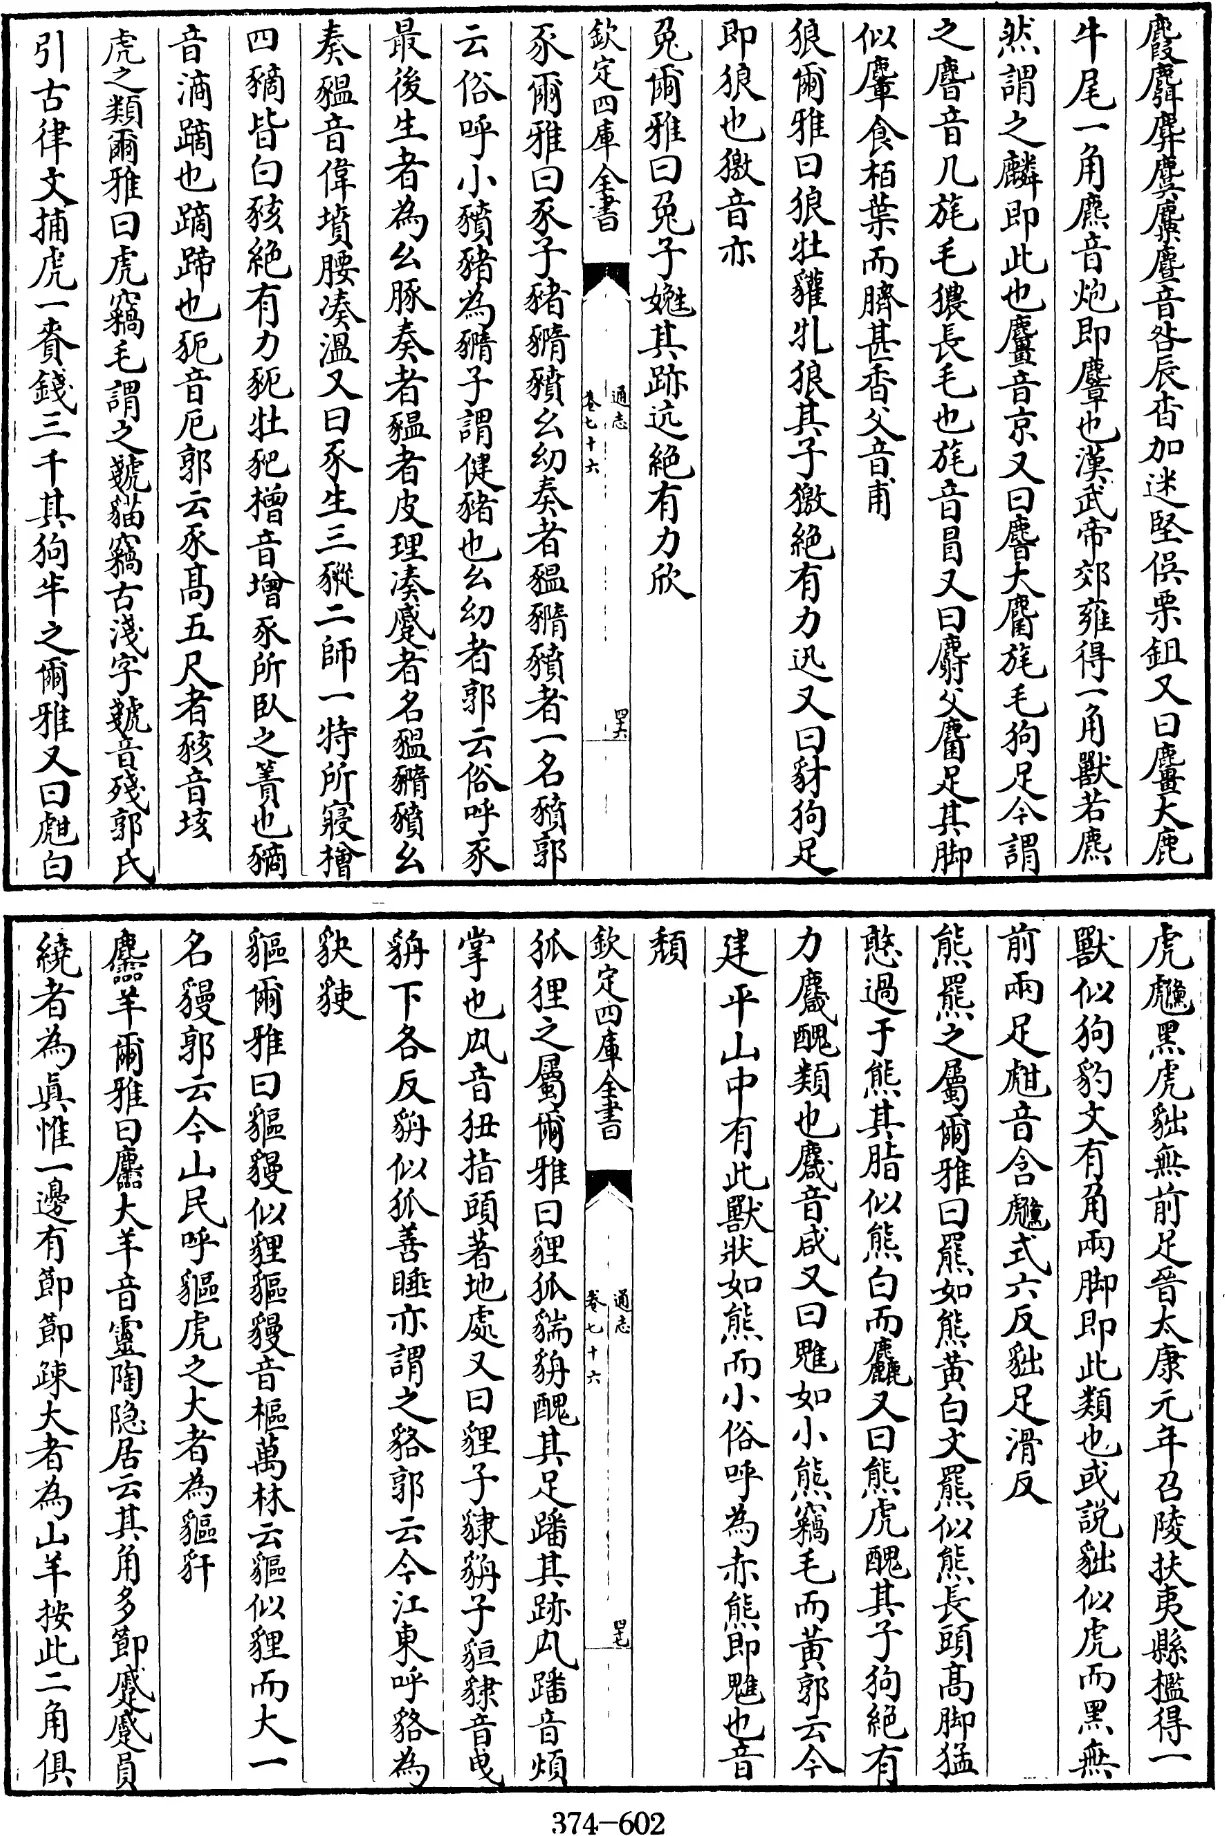 麚麛麉麌麜麆音咎辰杳加迷堅俁栗鉏又曰麠大鹿
牛尾一角麃音炮即麞也漢武帝郊雍得一角獸若麃
然謂之麟即此也麠音京又曰䴢大麕旄毛狗足今謂
之䴢音几旄毛㺜長毛也旄音冒又曰麝父麕足其脚
似麞食栢葉而臍甚香父音甫
狼爾雅曰狼牡貛牝狼其子獥絶有力迅又曰豺狗足
即狼也獥音亦
兔爾雅曰兔子嬎其跡迒絶有力欣
欽定四庫全書 通志卷七十六 四十六
豕爾雅曰豕子豬䝐豶幺幼奏者豱䝐豶者一名豶郭
云俗呼小豶豬為䝐子謂健豬也幺幼者郭云俗呼豕
最後生者為幺豚奏者豱者皮理凑蹙者名豱䝐豶幺
奏豱音偉墳腰凑溫又曰豕生三豵二師一特所寢橧
四豴皆白豥絶有力豟牡豝橧音增豕所臥之蓐也豴
音滴蹢也蹢蹄也豟音厄郭云豕高五尺者豥音垓
虎之類爾雅曰虎竊毛謂之虦貓竊古淺字虦音殘郭氏
引古律文捕虎一賚錢三千其狗半之爾雅又曰甝白
虎虪黑虎貀無前足晉太康元年召陵扶夷縣檻得一
獸似狗豹文有角兩脚即此類也或說貀似虎而黑無
前兩足甝音含虪式六反貀足滑反
熊羆之屬爾雅曰羆如熊黄白文羆似熊長頭高脚猛
憨過于熊其脂似熊白而麤又曰熊虎醜其子狗絶有
力麙醜類也麙音咸又曰魋如小熊竊毛而黄郭云今
建平山中有此獸狀如熊而小俗呼為赤熊即魋也音
頹
欽定四庫全書 通志卷七十六 四十七
狐狸之屬爾雅曰狸狐貒貈醜其足蹯其跡厹蹯音煩
掌也厹音狃指頭著地處又曰貍子貄貈子貆貄音曳
貈下各反貈似狐善睡亦謂之貉郭云今江東呼貉為
貁䝤
貙爾雅曰貙獌似貍貙獌音樞萬林云貙似貍而大一
名獌郭云今山民呼貙虎之大者為貙豻
麢羊爾雅曰麢大羊音靈陶隐居云其角多節蹙蹙員
繞者為真惟一邊有節節疎大者為山羊按此二角俱
374-602